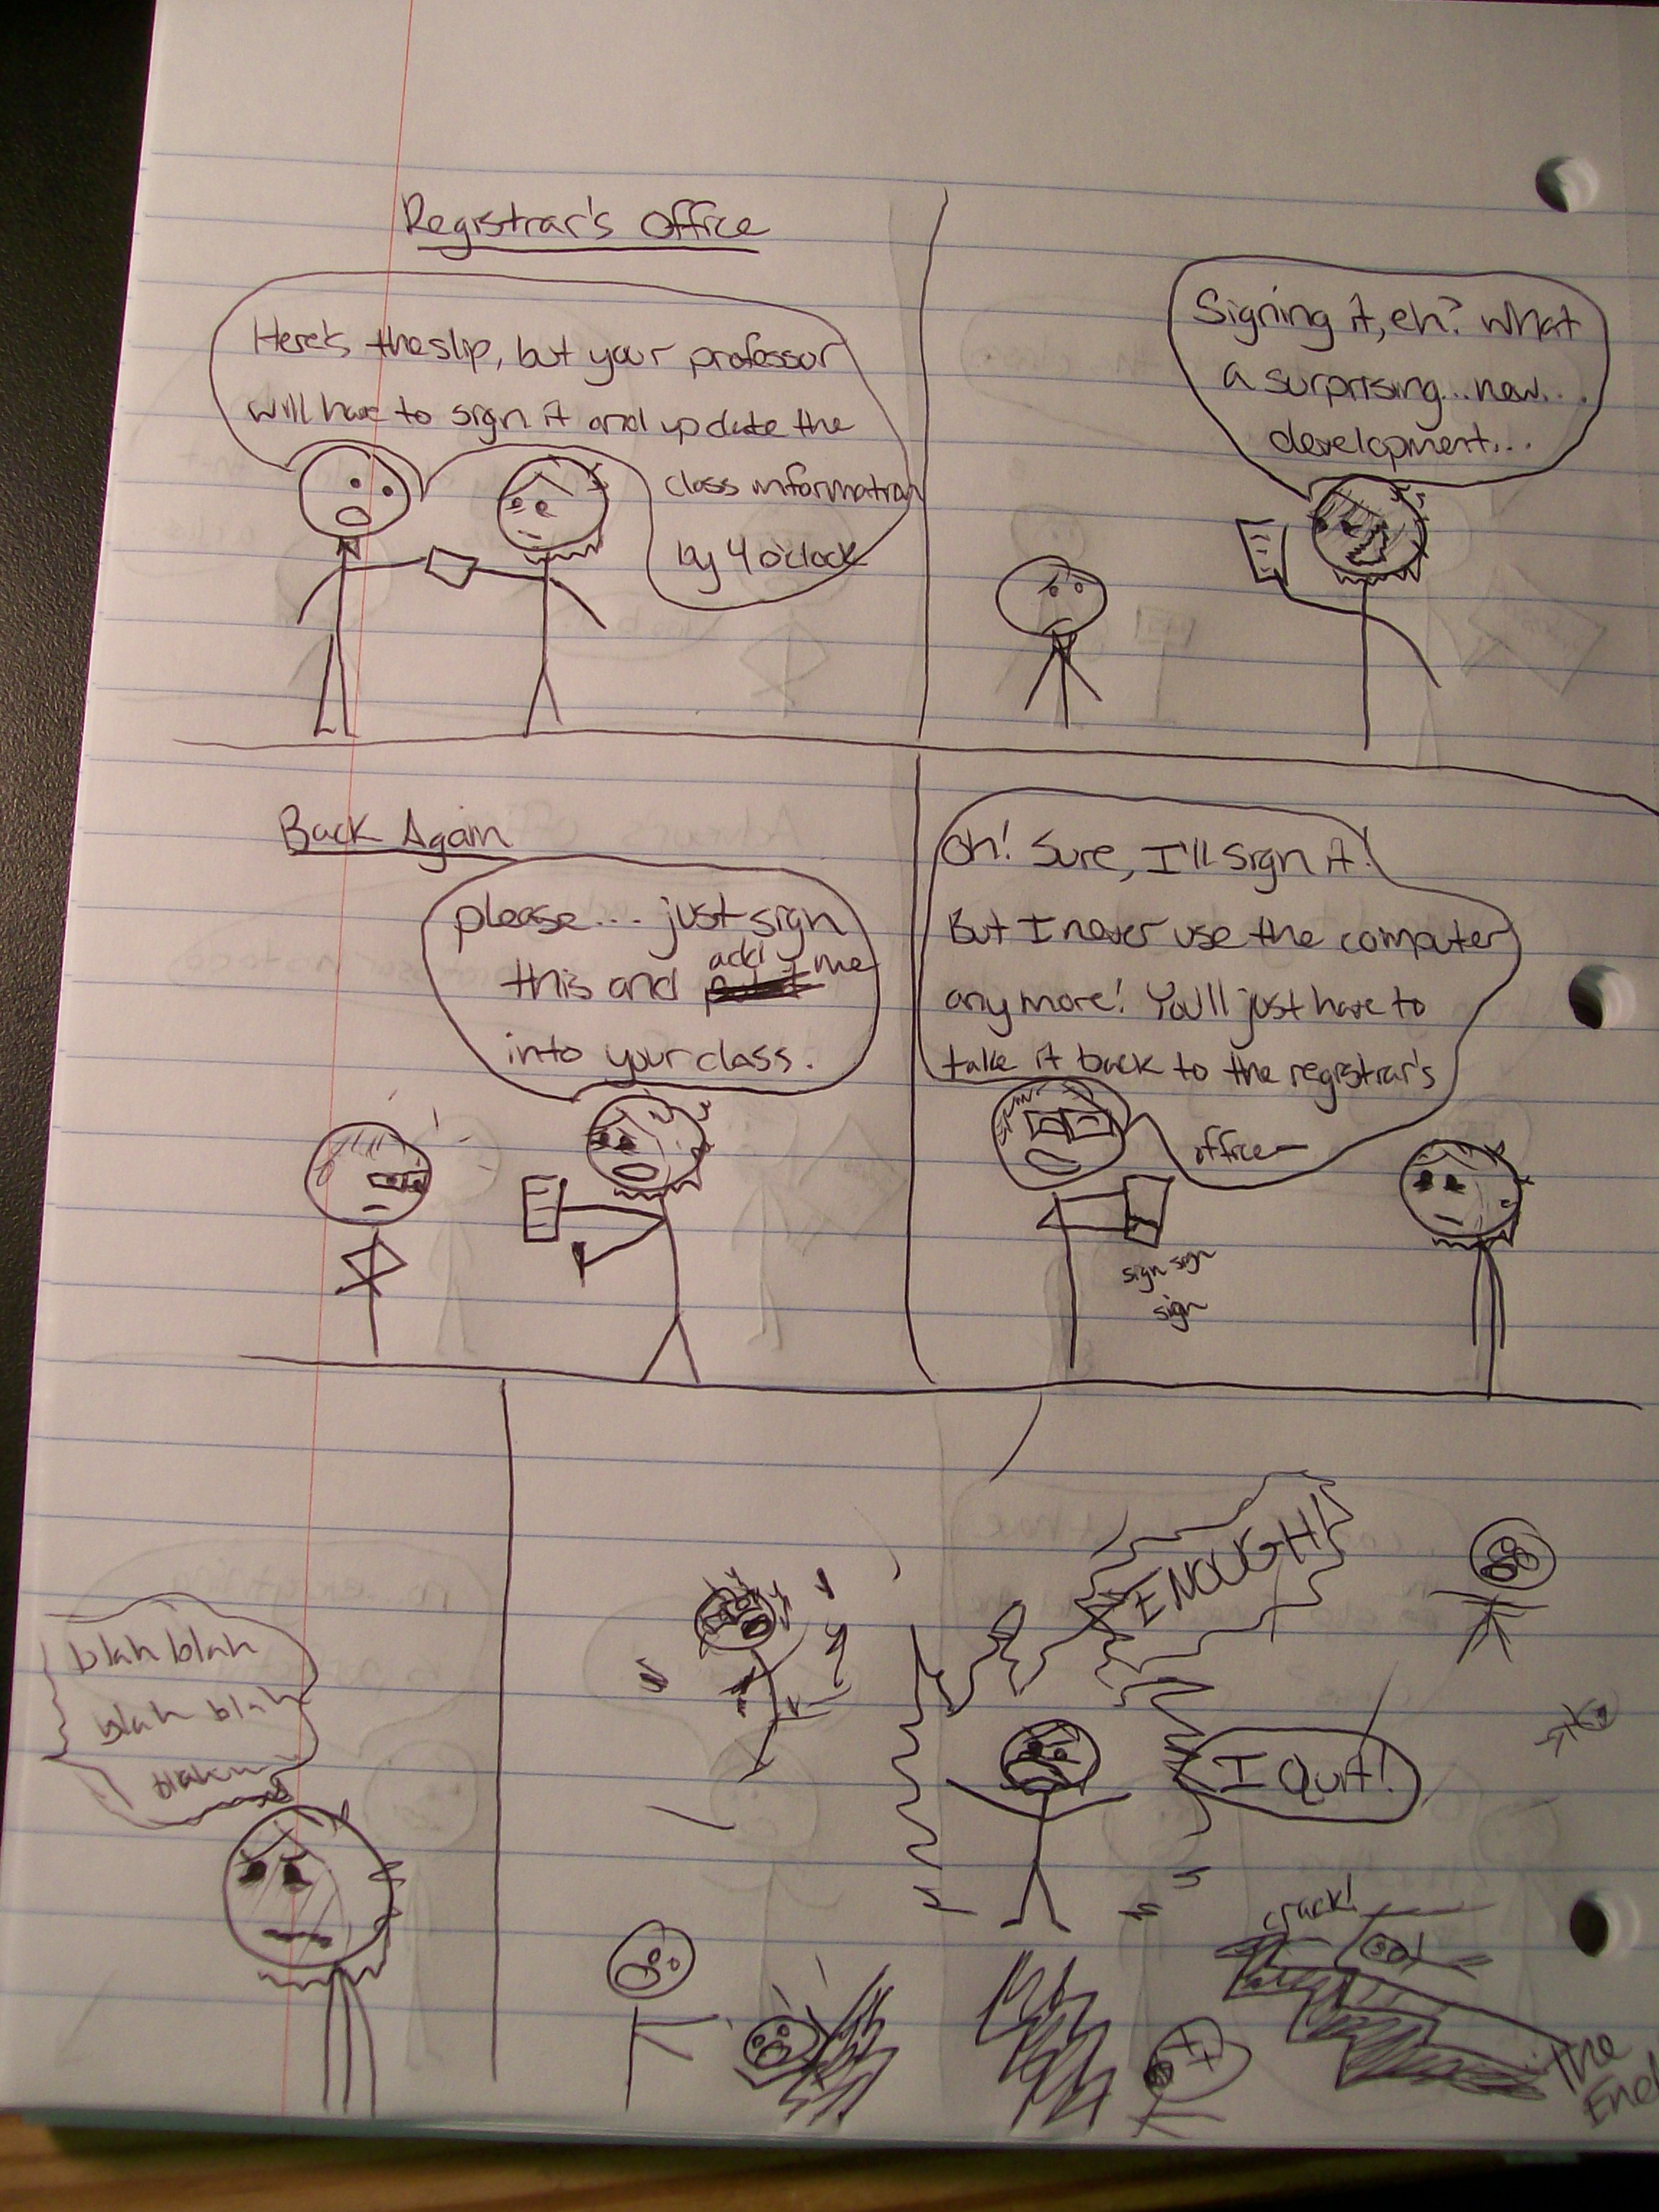 Registrar's Office
Here's the slip, but your professor
will have to sign it and update the
class information
by 4 o'clock
Signing it, eh? What
a surprising...new...
development...
Back Again
please.... just sign
add
this and me
into your class.
Oh! Sure, I'll sign it!
But I never use the computer
anymore! You'll just have to
take it back to the registrar's
office—
sign sign
sign
blah blah
blah blah
ENOUGH!
I Quit!
crack!
The
End